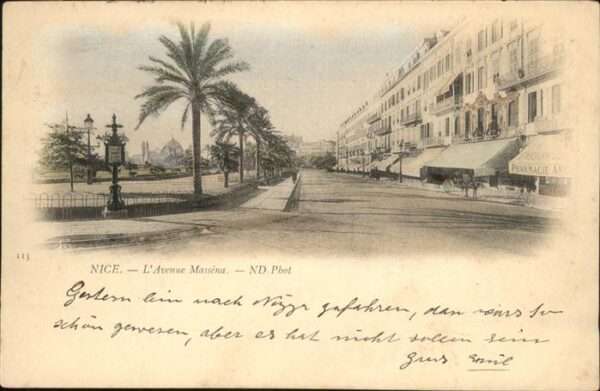 PHARMACIE
113
NICE. — L'Avenue Masséna. — ND Phot
Gestern bin nach Nizza gefahren, dan wärs so
schön gewesen, aber es hat nicht sollen sein
Gruss Emil